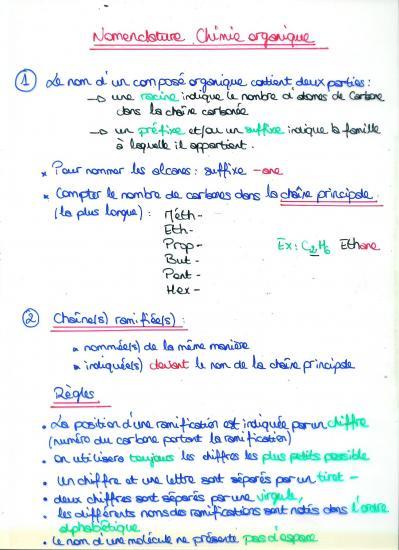 Nomenclature Chimie organique
① Le nom d'un composé organique contient deux parties :
→ une racine indique le nombre d'atomes de Carbone
dans la chaîne carbonée
→ un préfixe et/ou un suffixe indique la famille
à laquelle il appartient.
* Pour nommer les alcanes : suffixe -ane
* Compter le nombre de carbones dans la chaîne principale
(la plus longue) : Méth-
Eth-
Prop- Ex : C2H6 Ethane
But-
Pent-
Hex-
② Chaîne(s) ramifiée(s) :
* nommée(s) de la même manière
* indiquée(s) devant le nom de la chaîne principale
Règles
• La position d'une ramification est indiquée par un chiffre
(numéro du carbone portant la ramification)
• on utilisera toujours les chiffres les plus petits possible
• Un chiffre et une lettre sont séparés par un tiret -
• deux chiffres sont séparés par une virgule,
• les différents noms des ramifications sont notés dans l'ordre
alphabétique
• le nom d'une molécule ne présente pas d'espace